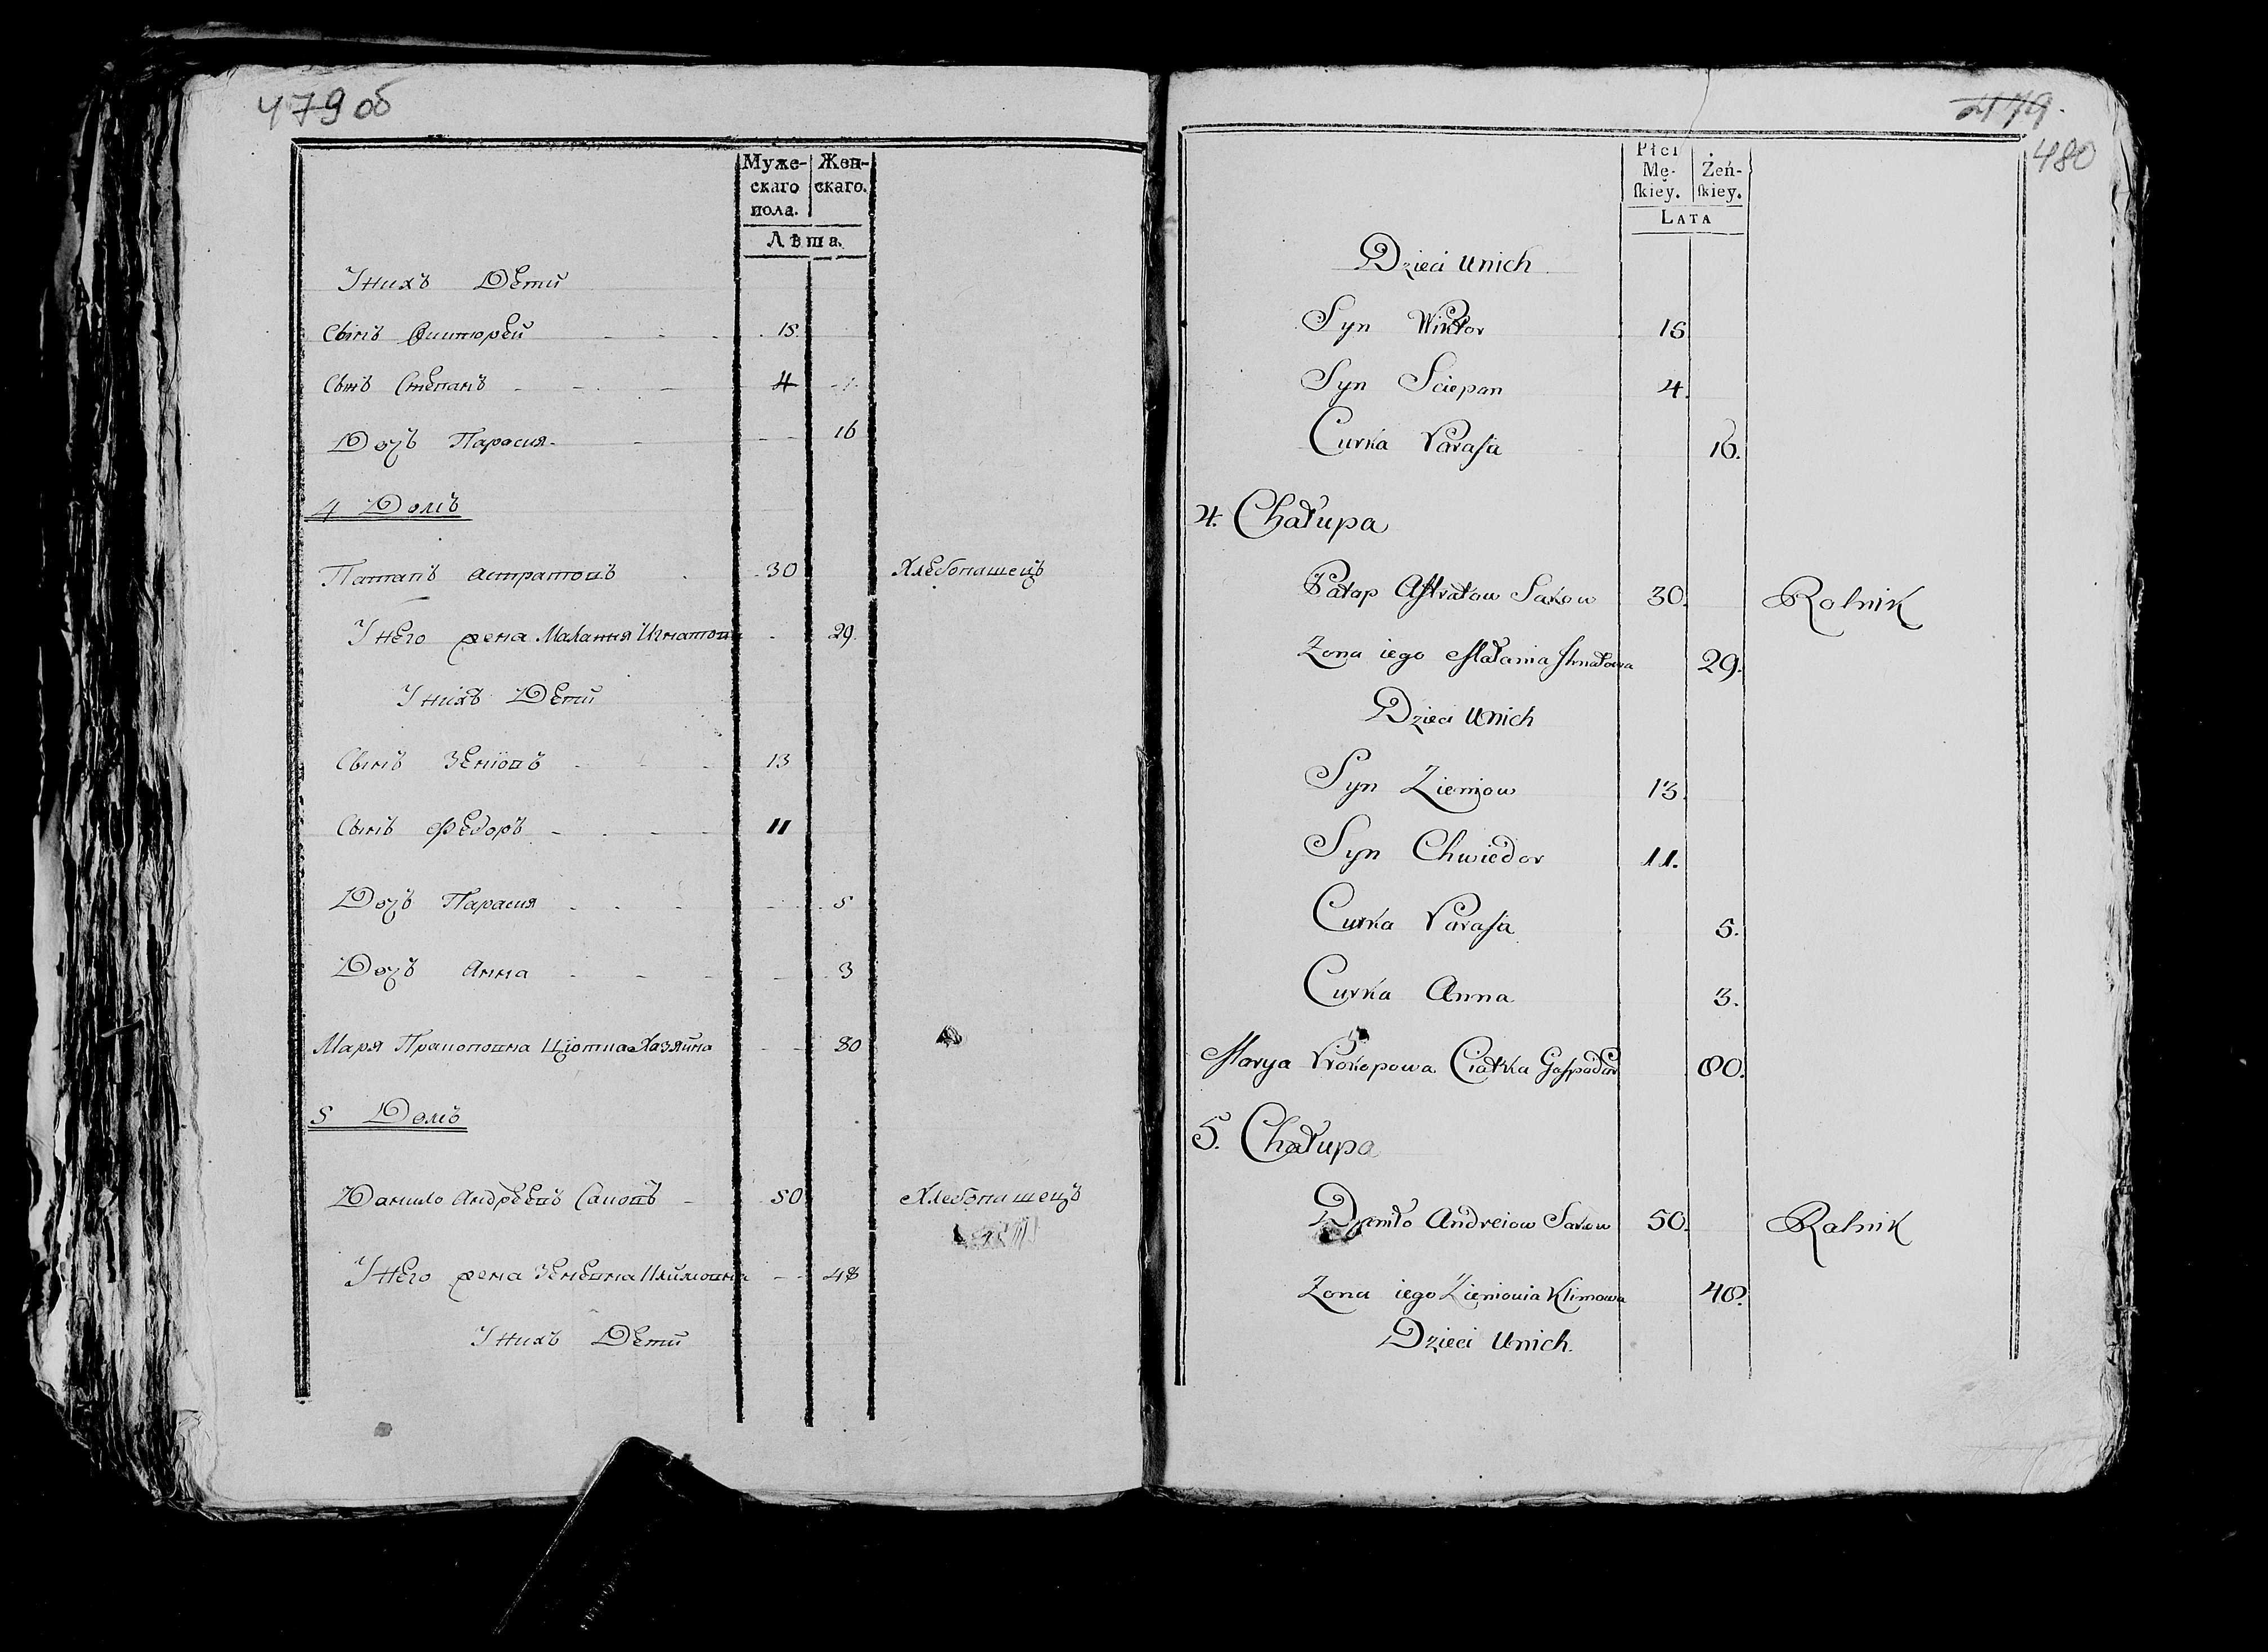 479 об
Муже- Жен-
скаго скаго.
пола.
Лѣта.
Унихъ Дети
Сынъ Викторей 15
Сынъ Степанъ 4
Дочь Парасия 16
4 Домъ
Патапъ Астратовъ 30 Хлебопашецъ
Унего жена Малания Игнатова 29
Унихъ Дети
Сынъ Земіовъ 13
Сынъ Федоръ 11
Дочь Парасия 5
Дочь Анна 3
Маря Пракоповна Ціотка Хазяйна 80
5 Домъ
Данило Андреевъ Саковъ 50 Хлебопашецъ
Унего жена Климовна 48
Унихъ Дети
479.
480
Płci
Mę- Żeń-
ſkiey. ſkiey.
LATA
Dzieci unich
Syn Wiktor 15
Syn Sciepan 4.
Curka Paraſia 16.
4. Chałupa
Patap Aſtratow Sakow 30. Rolnik
Zona iego Małania Ihnatowa 29.
Dzieci unich
Syn Ziemiow 13.
Syn Chwiedor 11.
Curka Paraſia 5.
Curka Anna 3.
Marya Prokopowa Ciotka Goſpodar 80.
5. Chałupa
Daniło Andreiow Sakow 50. Rolnik
Zona iego Zieniowia Klimowa 48.
Dzieci unich.